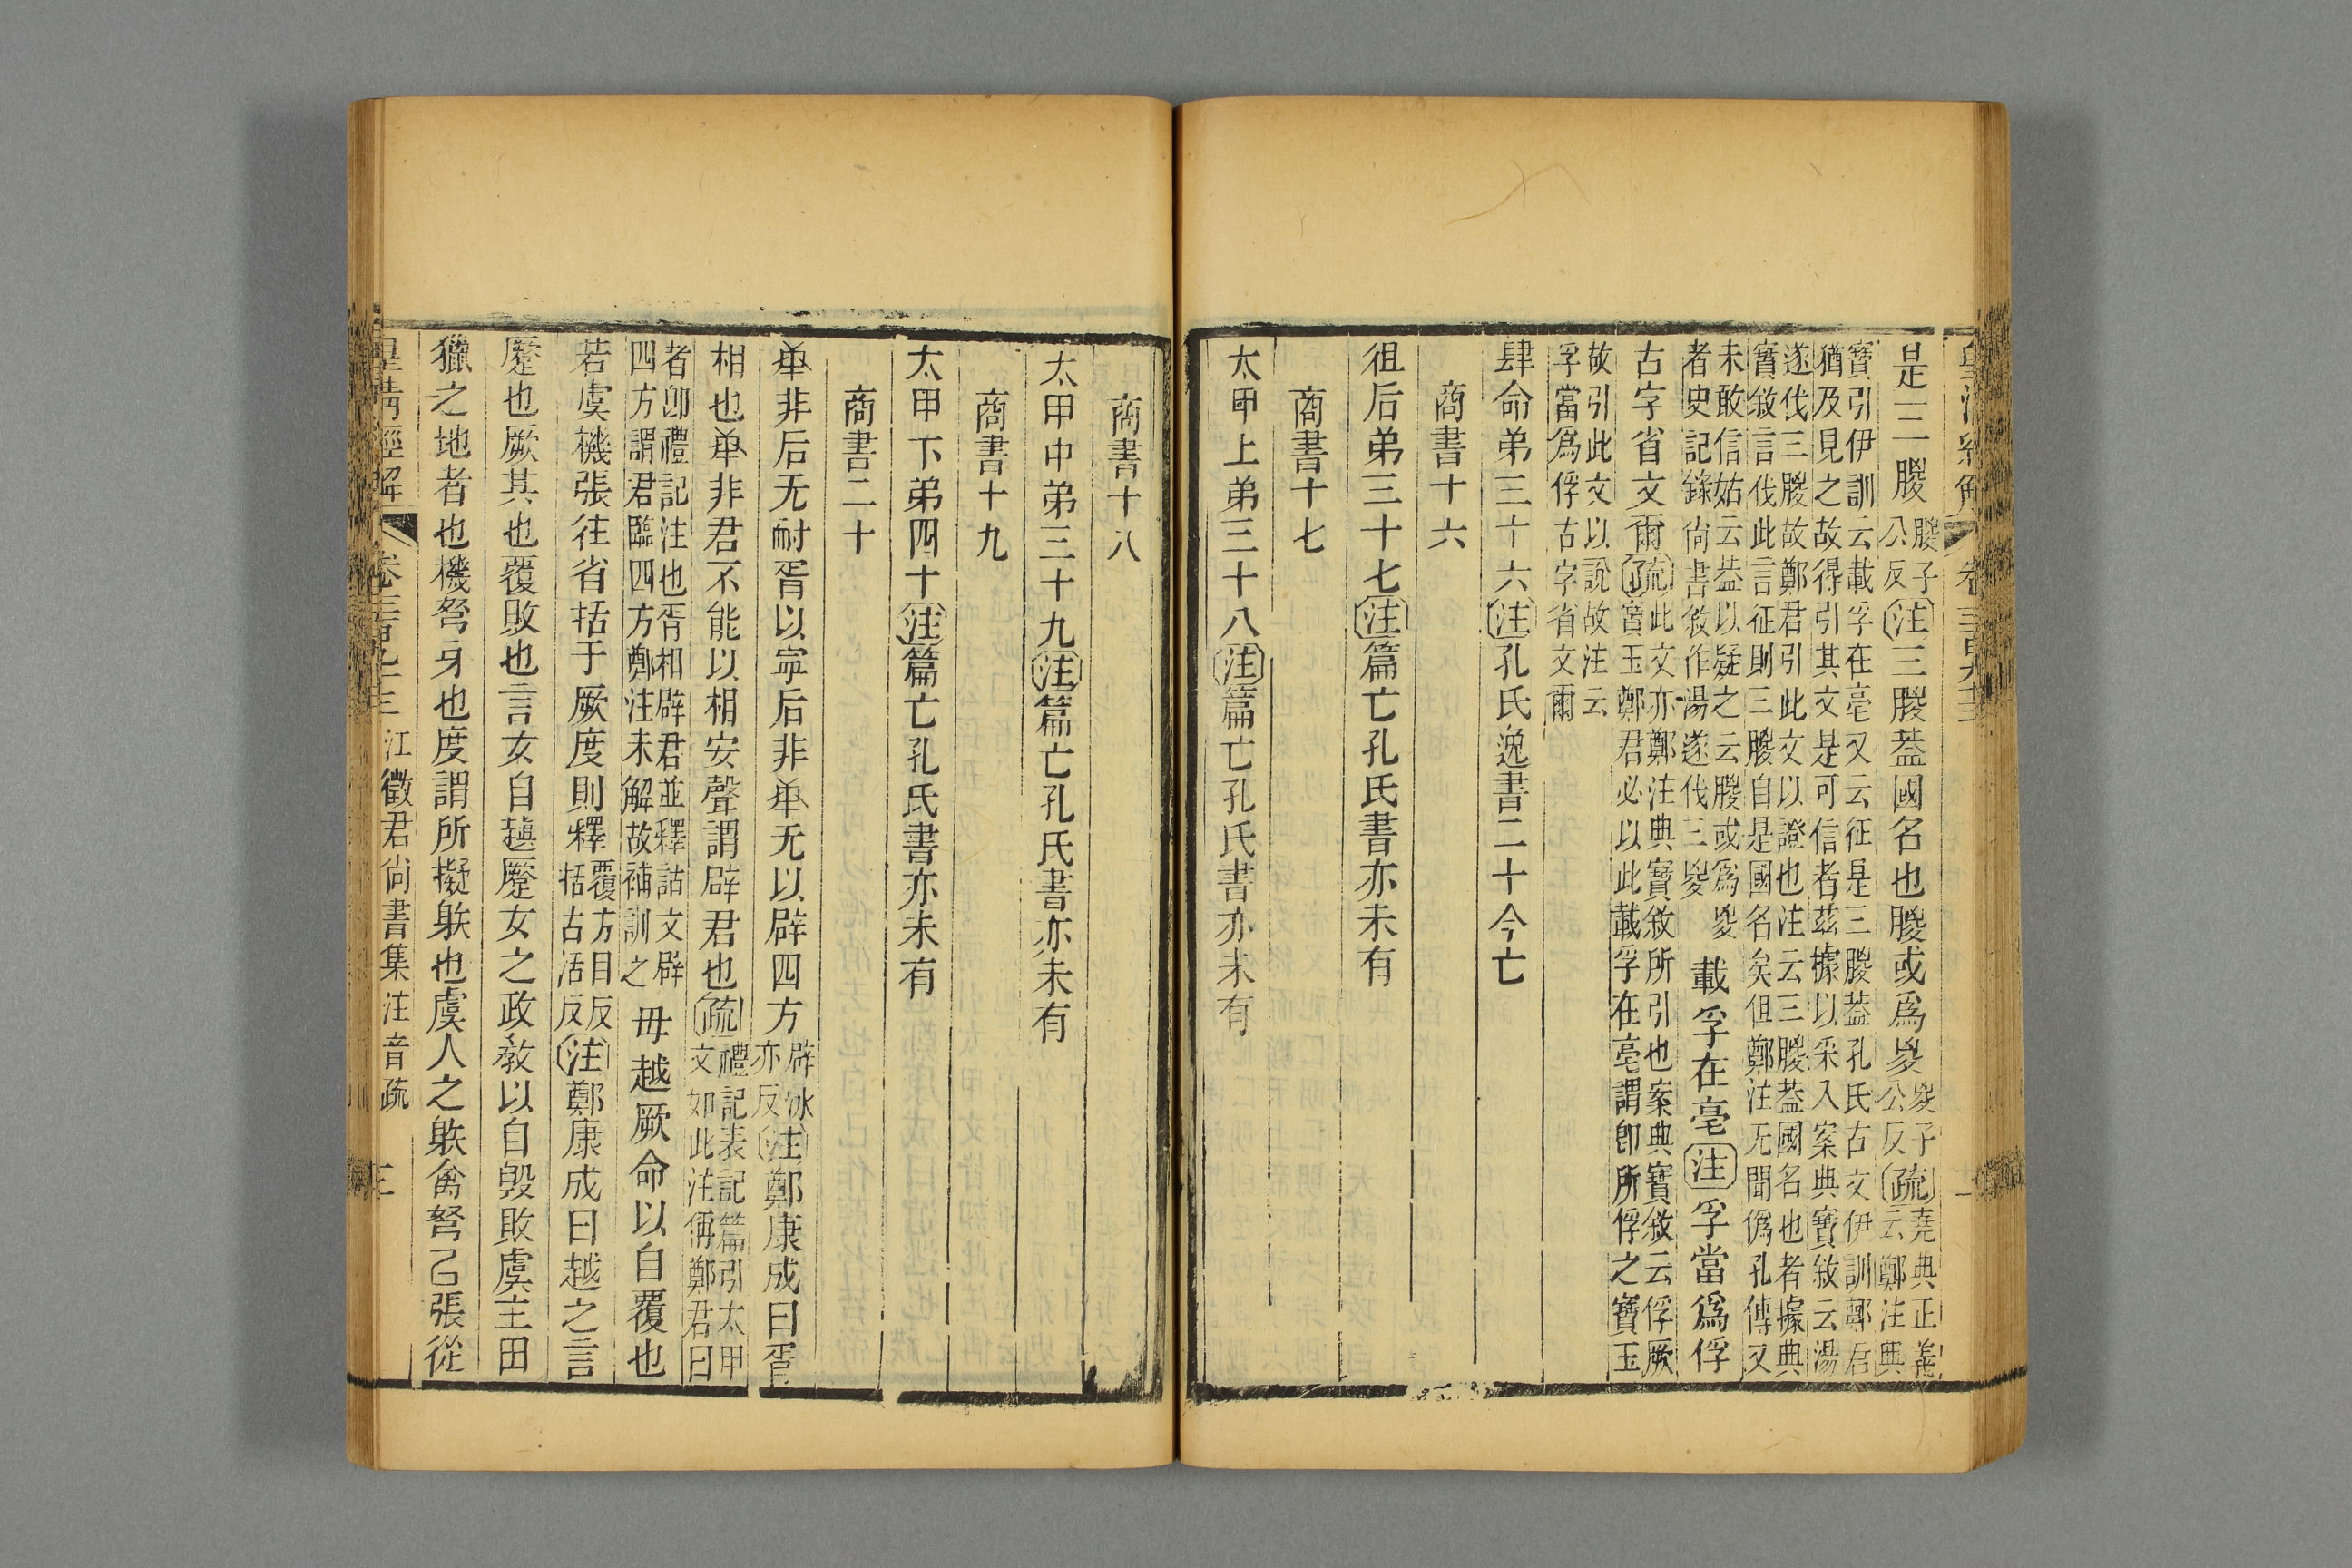 是三朡朡子公反注三朡葢國名也朡或爲㚇㚇子公反疏堯典正義云鄭注典
寶引伊訓云載孚在亳又云征是三朡葢孔氏古文伊訓鄭君
猶及見之故得引其文是可信者兹據以采入案典寶敘云湯
遂伐三朡故鄭君引此文以證也注云三朡葢國名也者據典
寶敘言伐此言征則三朡自是國名矣但鄭注无聞僞孔傳又
未敢信姑云葢以疑之云朡或爲㚇
者史記錄尙書敘作湯遂伐三㚇
載孚在亳注孚當爲俘
古字省文爾疏此文亦鄭注典寶敘所引也案典寶敘云俘厥
寶玉鄭君必以此載孚在亳謂卽所俘之寶玉
故引此文以說故注云
孚當爲俘古字省文爾
肆命弟三十六注孔氏逸書二十今亡
商書十六
徂后弟三十七注篇亡孔氏書亦未有
商書十七
太甲上弟三十八注篇亡孔氏書亦未有
商書十八
太甲中弟三十九注篇亡孔氏書亦未有
商書十九
太甲下弟四十注篇亡孔氏書亦未有
商書二十
𠦒非后无耐胥以寍后非𠦒无以辟四方辟冰亦反注鄭康成曰胥
相也𠦒非君不能以相安聲謂辟君也疏禮記表記篇引太甲文如此注偁鄭君曰
者卽禮記注也胥相辟君並釋詁文辟
四方謂君臨四方鄭注未解故補訓之
毋越厥命以自覆也
若虞機張往省括于厥度則釋覆方目反括古活反注鄭康成曰越之言
蹷也厥其也覆敗也言女自䞬蹷女之政敎以自毀敗虞主田
獵之地者也機弩牙也度謂所擬䠶也虞人之䠶禽弩已張從
皇淸經解
卷三百九十三
江徵君尙書集注音疏
三